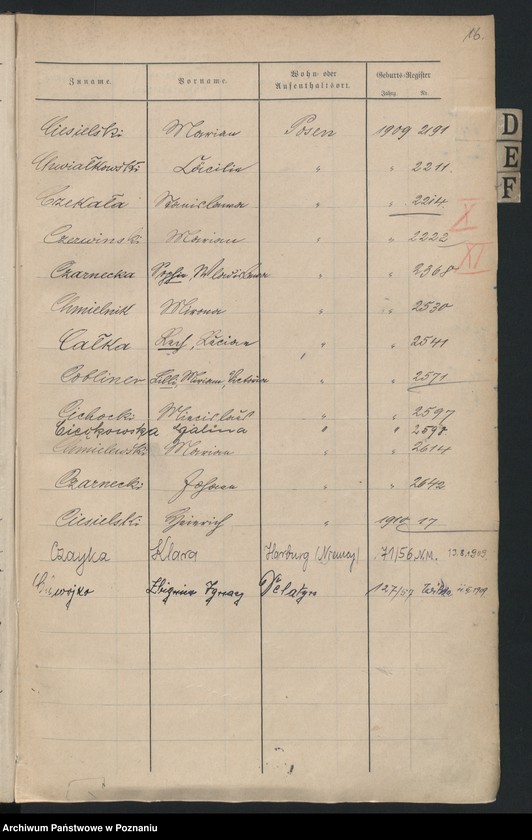 16.
Zuname. Vorname. Wohn- oder Aufenthaltsort. Geburts-Register
Jahrg. Nr.
Ciesielski Marian Posen 1909 2191
Chwiałkowski Cäcilie " " 2211.
Czekała Stanislawa " " 2214
X
Czerwinski Marian " " 2222
XI
Czarnecka Sophie, Wladislawa " " 2368
Chmielnik " " 2530
Całka " " 2541
Cobliner Marian, " " 2571
Cichocki Miecislaus " " 2597
Cieślikowska Halina " " 2598
Chmielewski Marian " " 2614
Czarnecki Johann " " 2642
Ciesielski Heinrich " 1910 17.
Czayka Klara Harburg (Niemcy) 71/56. NM. 13.8.1909
Zbigniew Ignacy 127/57
D
E
F
Archiwum Państwowe w Poznaniu